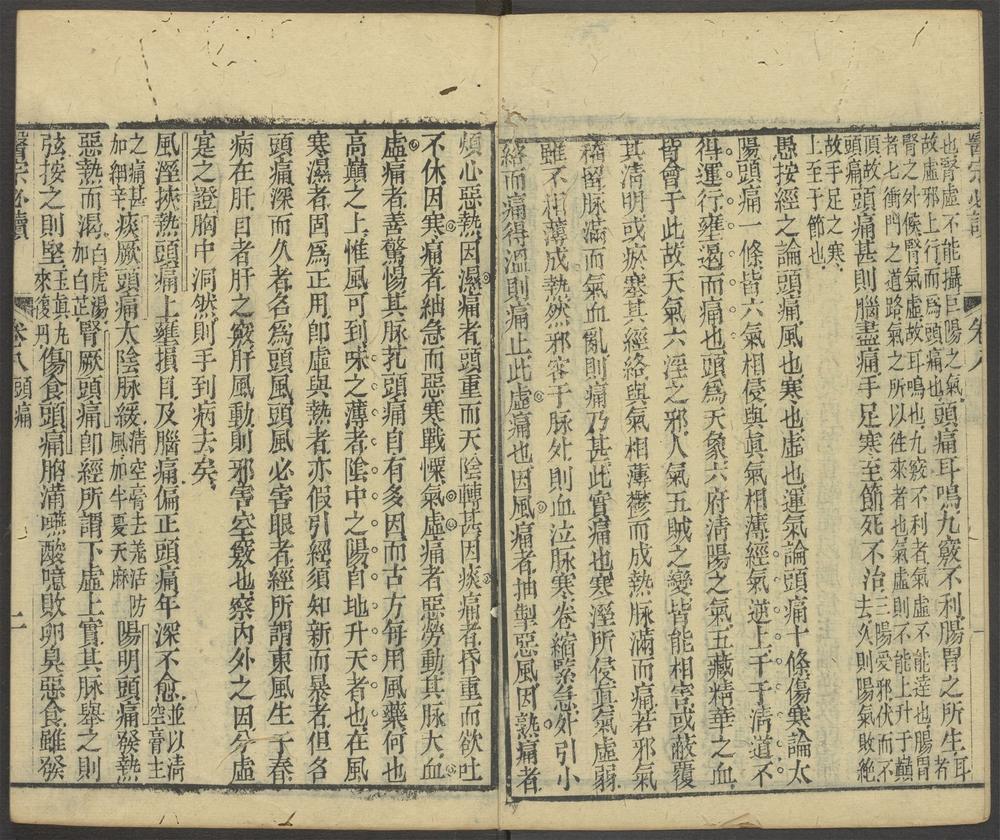 醫宗必讀　卷八
也腎虛不能攝巨陽之氣
故虛邪上行而爲頭痛也頭痛耳鳴九竅不利腸胃之所生耳者
腎之外候腎氣虛故耳鳴也九竅不利者氣虛不能達也腸胃
者七衝門之道路氣之所以往來者也氣虛則不能上升于巔
頂故頭痛
頭痛甚則腦盡痛手足寒至節死不治三陽受邪伏而不
去久則陽氣敗絶
故手足之寒
上至于節也
愚按經之論頭痛風也寒也虛也運氣論頭痛十條傷寒論太
陽頭痛一條皆六氣相侵與眞氣相薄經氣逆上干于清道不
得運行壅遏而痛也頭爲天象六府清陽之氣五藏精華之血
皆會于此故天氣六淫之邪人氣五賊之變皆能相害或蔽覆
其清明或瘀塞其經絡與氣相薄鬱而成熱脉滿而痛若邪氣
稽留脉滿而氣血亂則痛乃甚此實痛也寒溼所侵眞氣虛弱
雖不相薄成熱然邪客于脉外則血泣脉寒卷縮緊急外引小
絡而痛得溫則痛止此虛痛也因風痛者抽掣惡風因熱痛者
煩心惡熱因濕痛者頭重而天陰轉甚因痰痛者昏重而欲吐
不休因寒痛者紬急而惡寒戰慄氣虛痛者惡勞動其脉大血
虛痛者善驚惕其脉芤頭痛自有多因而古方每用風藥何也
高巔之上惟風可到味之薄者陰中之陽自地升天者也在風
寒濕者固爲正用卽虛與熱者亦假引經須知新而暴者但名
頭痛深而久者名爲頭風頭風必害眼者經所謂東風生于春
病在肝目者肝之竅肝風動則邪害空竅也察內外之因分虛
寔之證胸中洞然則手到病去矣
風溼挾熱頭痛上壅損目及腦痛偏正頭痛年深不愈並以清
空膏主
之痛甚
加細辛痰厥頭痛太陰脉緩清空膏去羗活防
風加半夏天麻陽明頭痛發熱
惡熱而渴白虎湯
加白芷腎厥頭痛卽經所謂下虛上實其脉舉之則
弦按之則堅玉眞丸
來復丹傷食頭痛胸滿嚥酸噫敗卵臭惡食雖發
醫宗必讀　卷八　頭痛　二